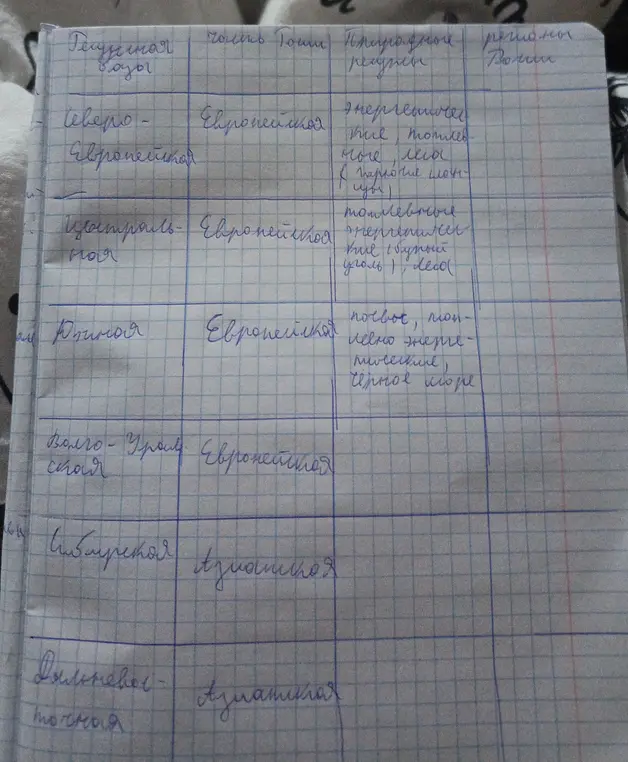 Ресурсная базы
часть России
Природные ресурсы
регионы России
Северо-Европейская
Европейская
энергетичес-
кие, топлив-
ные, леса
Централь-
ная
Европейская
топливные
энергетичес-
кие (бурый
уголь), леса
Южная
Европейская
почвы, топ-
ливно энерге-
тические,
Чёрное море
Волго-Ураль
ская
Европейская
Сибирская
Азиатская
Дальневос-
точная
Азиатская